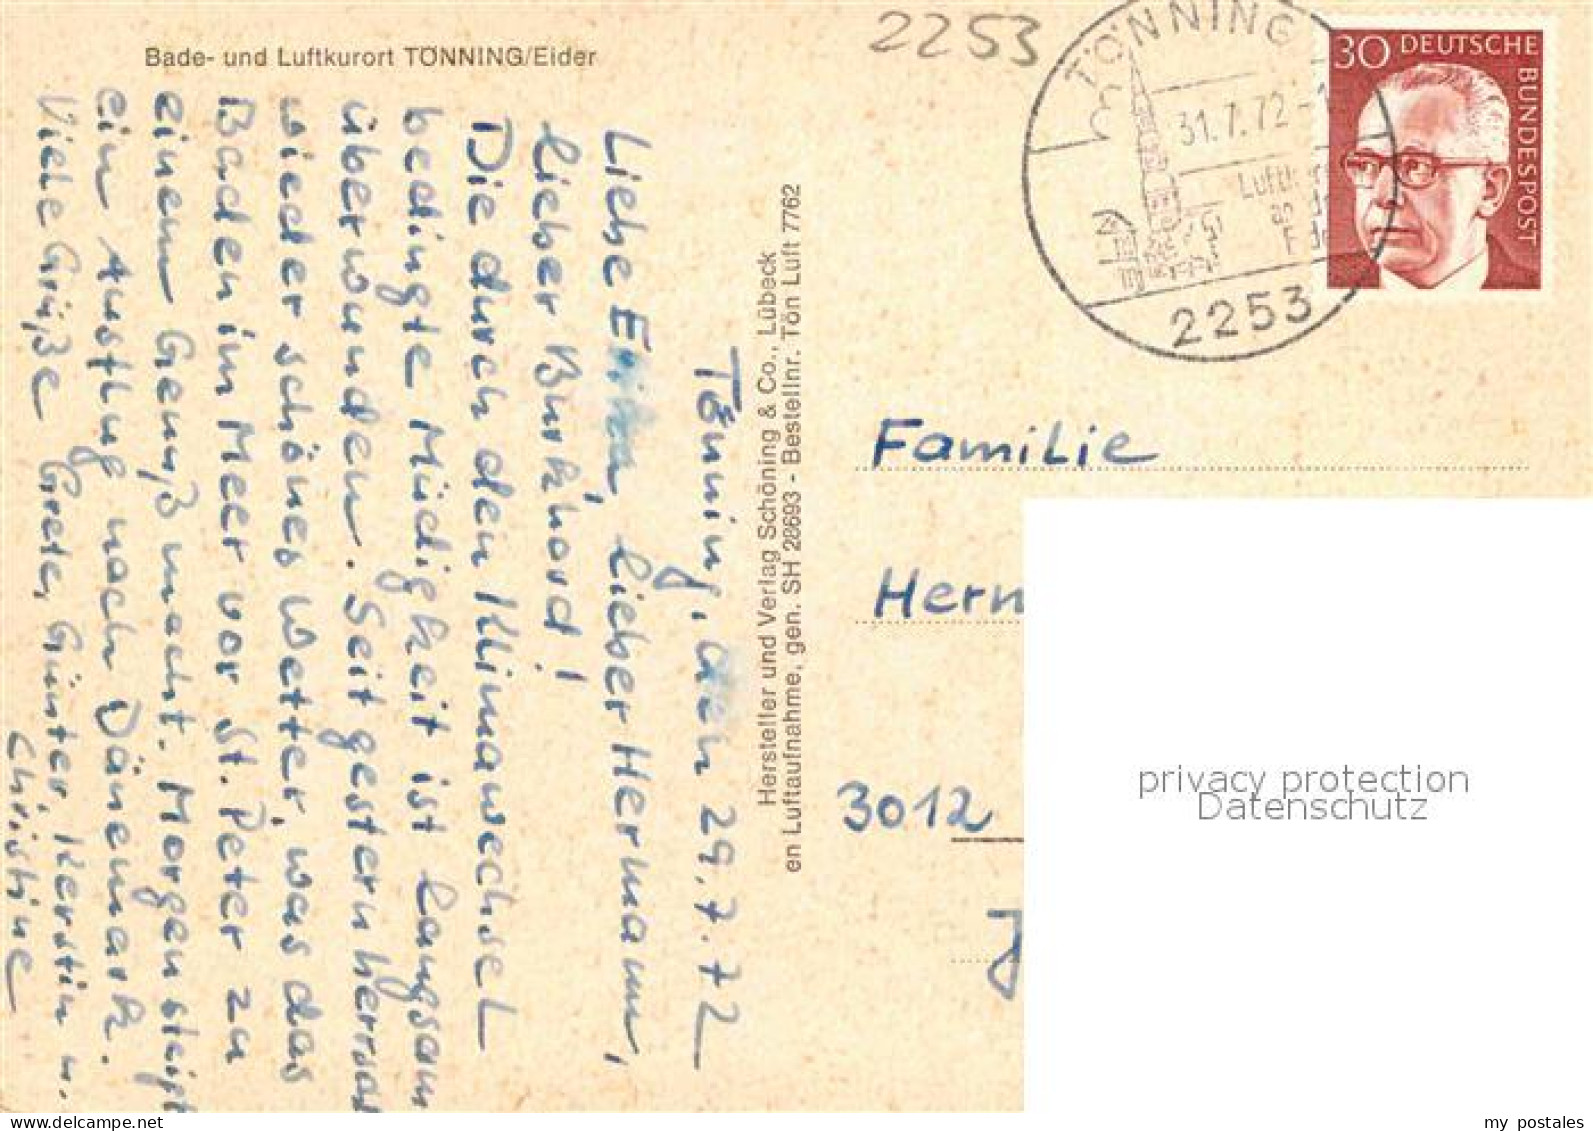 Bade- und Luftkurort TÖNNING/Eider
2253
TÖNNING
31.7.72-1
Luftkur
a.d.
Eide
2253
30 DEUTSCHE
BUNDESPOST
Tönning, den 29.7.72
Liebe Erika, lieber Hermann,
lieber Burkhard!
Die durch den Klimawechsel
bedingte Müdigkeit ist langsam
überwunden. Seit gestern herrscht
wieder schönes Wetter, was das
Baden im Meer vor St. Peter zu
einem Genuß macht. Morgen steigt
ein Ausflug nach Dänemark.
Viele Grüße Grete, Günter, Kerstin u.
Christine
Hersteller und Verlag Schöning & Co., Lübeck
en Luftaufnahme, gen. SH 28693 - Bestellnr. Tön Luft 7762
Familie
Herm
3012
privacy protection
Datenschutz
my postales